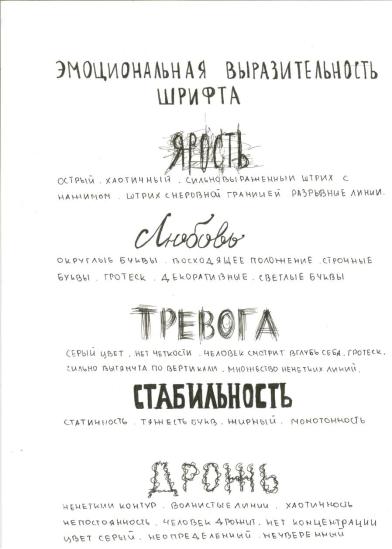 ЭМОЦИОНАЛЬНАЯ ВЫРАЗИТЕЛЬНОСТЬ
ШРИФТА
ЯРОСТЬ
ОСТРЫЙ. ХАОТИЧНЫЙ. СИЛЬНОВЫРАЖЕННЫЙ ШТРИХ С
НАЖИМОМ. ШТРИХ С НЕРОВНОЙ ГРАНИЦЕЙ РАЗРЫВНЫЕ ЛИНИИ.
Любовь
ОКРУГЛЫЕ БУКВЫ. ВОСХОДЯЩЕЕ ПОЛОЖЕНИЕ. СТРОЧНЫЕ
БУКВЫ. ГРОТЕСК. ДЕКОРАТИВНЫЕ. СВЕТЛЫЕ БУКВЫ
ТРЕВОГА
СЕРЫЙ ЦВЕТ. НЕТ ЧЕТКОСТИ. ЧЕЛОВЕК СМОТРИТ ВГЛУБЬ СЕБЯ. ГРОТЕСК.
СИЛЬНО ВЫТЯНУТА ПО ВЕРТИКАЛИ. МНОЖЕСТВО НЕЧЕТКИХ ЛИНИЙ.
СТАБИЛЬНОСТЬ
СТАТИЧНОСТЬ. ТЯЖЕСТЬ БУКВ. ЖИРНЫЙ. МОНОТОННОСТЬ
ДРОЖЬ
НЕЧЕТКИЙ КОНТУР. ВОЛНИСТЫЕ ЛИНИИ. ХАОТИЧНОСТЬ
НЕПОСТОЯННОСТЬ. ЧЕЛОВЕК ДРОЖИТ. НЕТ КОНЦЕНТРАЦИИ
ЦВЕТ СЕРЫЙ. НЕОПРЕДЕЛЕННЫЙ. НЕУВЕРЕННЫЙ